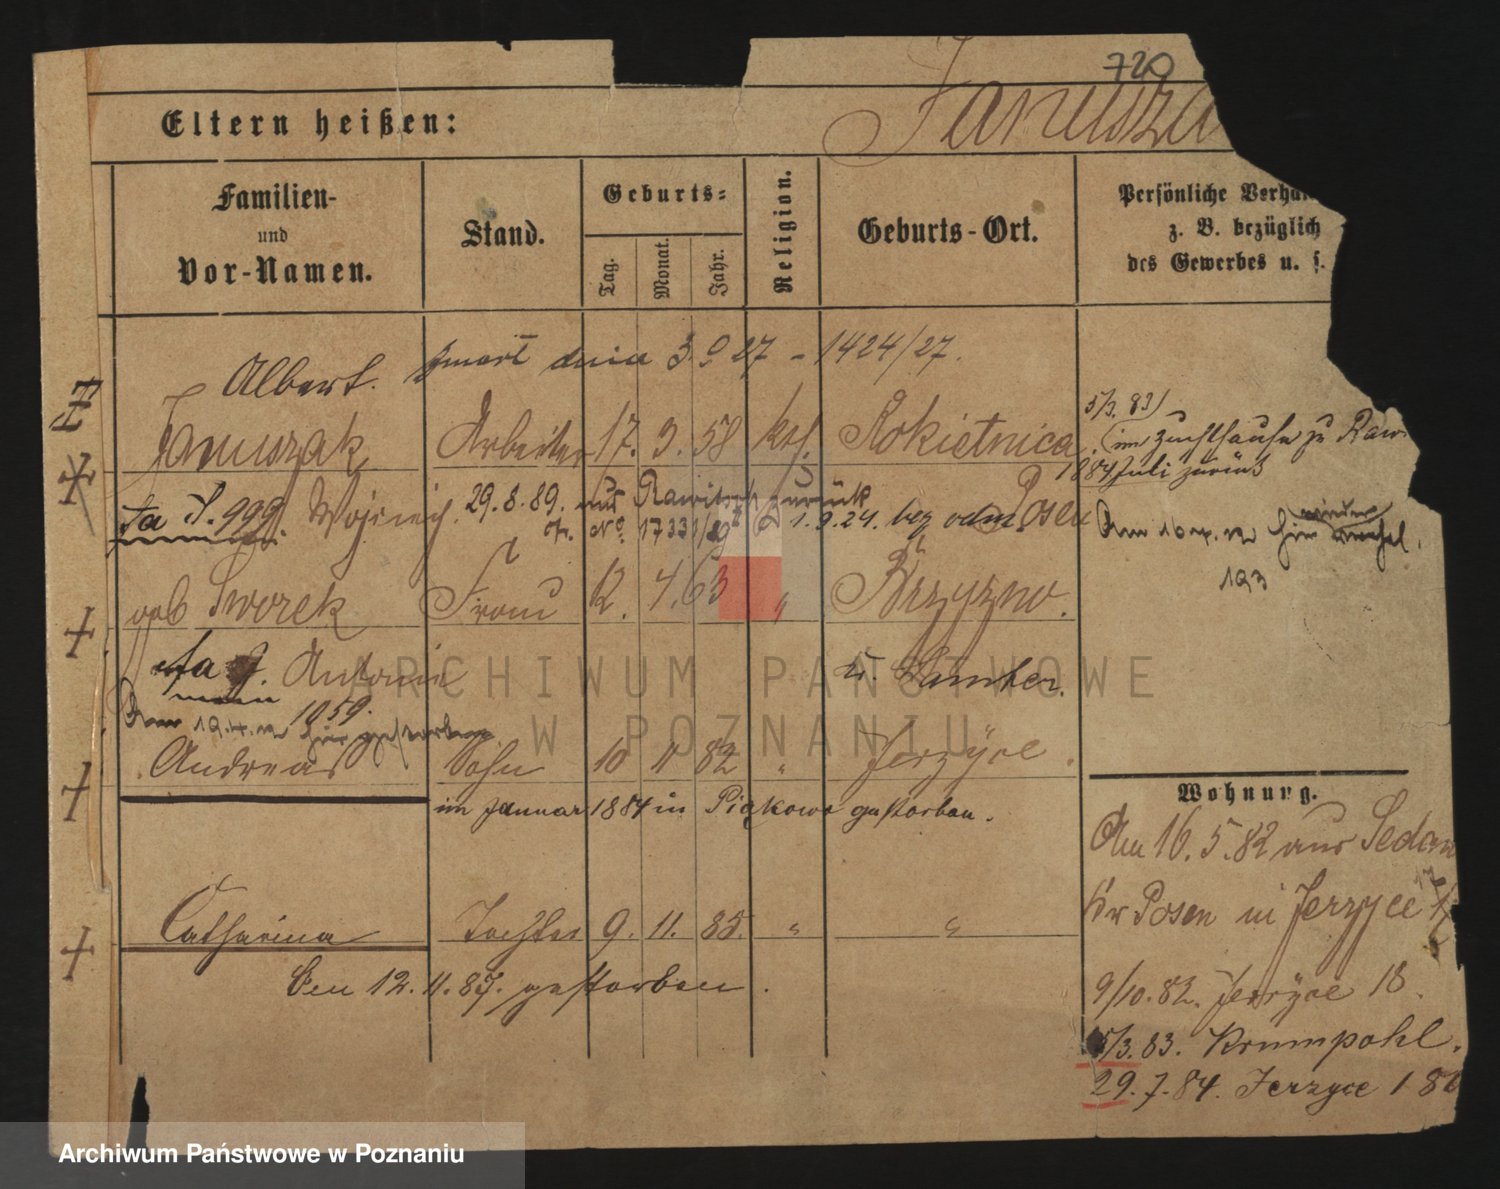 720
Eltern heißen:
Janusza
Familien-
und
Vor-Namen.
Stand.
Geburts-
Tag.
Monat.
Jahr.
Religion.
Geburts-Ort.
Persönliche Verhä
z. B. bezüglich
des Gewerbes u. s.
Albert. zmarł dnia 3. 9 27 - 1424/27.
Januszak Arbeiter 17. 3. 58 kth. Rokietnica
5/3. 83)
im Zuchthause zu Raw
1884 Juli zurück
29.8.89. aus Rawitsch zurück
No 17331/ 1.9.24. Posen
Am 16 wieder
193
geb Tworek Frau 12. 4. 63 " Brzyzno.
Antonie
1859.
Am 19.4. hier gestorben
Andreas Sohn 10 11 82 " Jerzyce.
im Januar 1884 in Piątkowo gestorben.
Wohnung.
Am 16. 5. 82 aus Sedan
b/r Posen in Jerzyce
Catharina Tochter 9. 11. 85. " "
Den 12. 11. 87. gestorben.
9/10. 82. Jerzyce 18.
5/3. 83. Krumpohl.
29. 7. 84. Jerzyce 1
ARCHIWUM PAŃSTWOWE
W POZNANIU
Archiwum Państwowe w Poznaniu